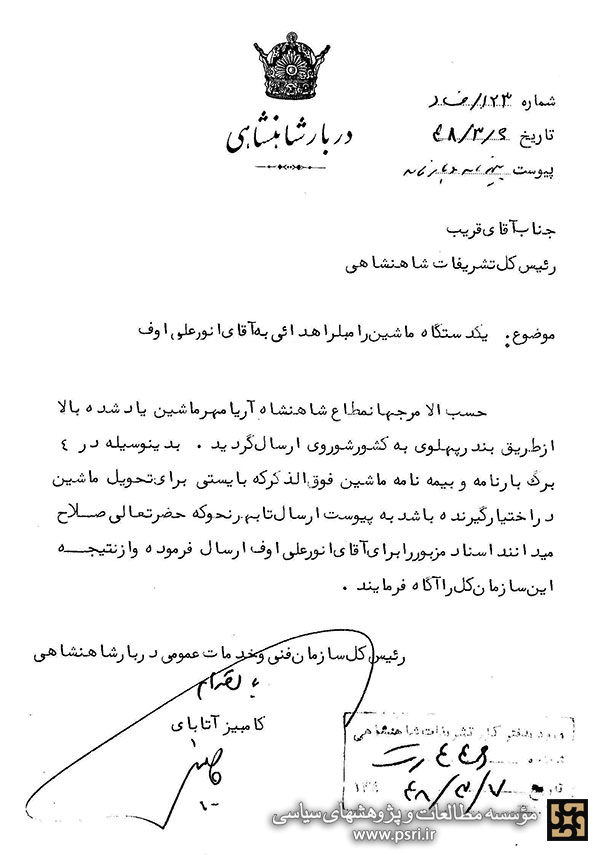 دربار شاهنشاهی
شماره ۱۲۳/ف د
تاریخ ۴۸/۳/۶
پیوست
جناب آقای قریب
رئیس کل تشریفات شاهنشاهی
موضوع: یکدستگاه ماشین رامبلر اهدائی به آقای انورعلی اوف
حسب الامر جهانمطاع شاهنشاه آریامهر ماشین یاد شده بالا
از طریق بندر پهلوی به کشور شوروی ارسال گردید . بدینوسیله در ٤
برگ بارنامه و بیمه نامه ماشین فوق الذکر که بایستی برای تحویل ماشین
در اختیار گیرنده باشد به پیوست ارسال تا بهر نحو که حضرتعالی صلاح
میدانند اسناد مزبور را برای آقای انورعلی اوف ارسال فرموده و از نتیجه
این سازمان کل را آگاه فرمایند .
رئیس کل سازمان فنی و خدمات عمومی دربار شاهنشاهی
کامبیز آتابای
ورود بدفتر کل تشریفات شاهنشاهی
شماره
تاریخ ۴۸/۳/۷ ۱۳۴
مؤسسه مطالعات و پژوهشهای سیاسی
www.psri.ir